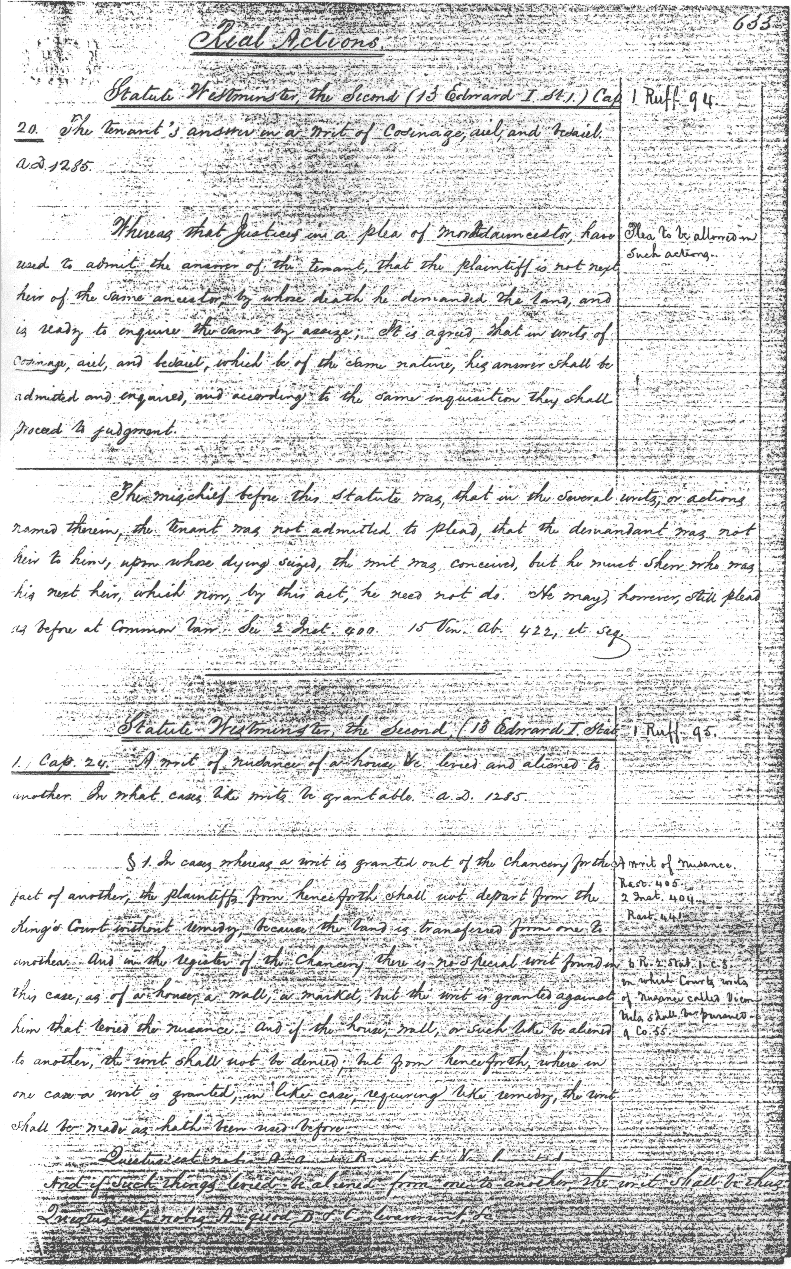 633
Real Actions.
Statute Westminster, the Second (13 Edward I. St. 1.) Cap
1 Ruff. 94.
20. The tenant's answer in a writ of Cosinage, aiel, and besaiel.
A.D. 1285.
Whereas that Justices in a plea of mortdauncestor, have
Plea to be allowed in
such actions.
used to admit the answer of the tenant, that the plaintiff is not next
heir of the same ancestor, by whose death he demanded the land, and
is ready to enquire the same by assize; It is agreed, that in writs of
Cosinage, aiel, and besaiel, which be of the same nature, his answer shall be
admitted and enquired, and according to the same inquisition they shall
proceed to judgment.
The mischief before this Statute was, that in the several writs, or actions
named therein, the tenant was not admitted to plead, that the demandant was not
heir to him, upon whose dying seized, the writ was conceived, but he must shew who was
his next heir, which now, by this act, he need not do. He may, however, still plead
as before at Common law. See 2 Inst. 400. 15 Vin. Ab. 422, et seq.
Statute Westminster, the Second, (13 Edward I. Stat
1 Ruff. 95.
1.) Cap. 24. A writ of nusance of a house &c. levied and aliened to
another. In what cases like writs be grantable. A.D. 1285.
§ 1. In cases whereas a writ is granted out of the Chancery for the
A writ of Nusance.
Rast. 405.
2 Inst. 404.
Rast. 441.
fact of another, the plaintiffs from henceforth shall not depart from the
King's Court without remedy, because the land is transferred from one to
another. And in the register of the Chancery there is no special writ found in
6 R. 2. Stat. 1. c. 3.
in which Courts writs
of Nusance called Vicon
tiels shall be pursued.
9 Co. 55.
this case, as of a house, a wall, a market, but the writ is granted against
him that levied the nusance. And if the house, wall, or such like be aliened
to another, the writ shall not be denied; but from henceforth, where in
one case a writ is granted, in like case, requiring like remedy, the writ
shall be made as hath been used before.
Questus est
And if such things levied be aliened from one to another the writ shall be thus
Questus est nobis A. quod B. & C. levaverunt &c.